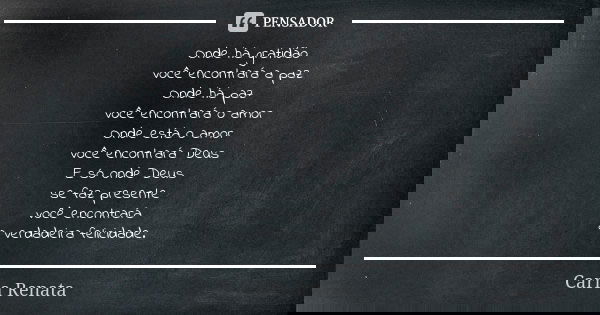 PENSADOR
Onde há gratidão
você encontrará a paz
Onde há paz
você encontrará o amor
Onde está o amor
você encontrará Deus
E só onde Deus
se faz presente
você encontrará
a verdadeira felicidade.
Carla Renata